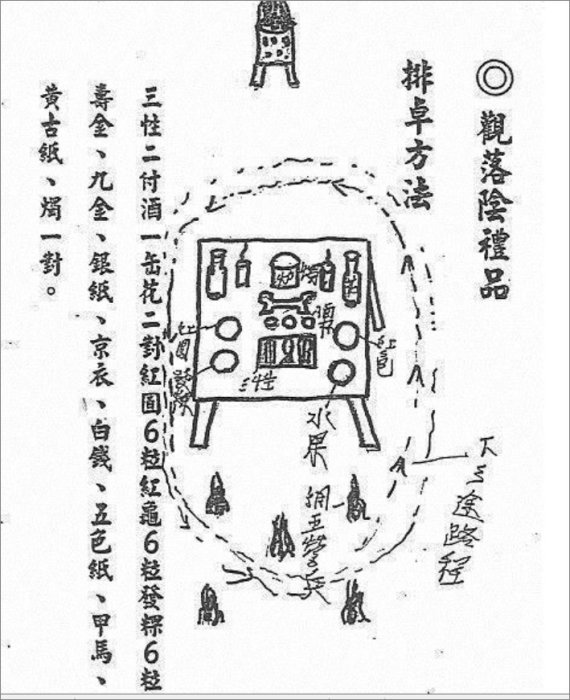 ◎觀落陰禮品
排卓方法
三性二付酒一缶花二對紅圓6粒紅龜6粒發粿6粒
壽金、九金、銀紙、京衣、白錢、五色紙、甲馬、
黃古紙、燭一對。
炉
花
紅圓
發粿
三牲
水果
五營兵
下三途路程